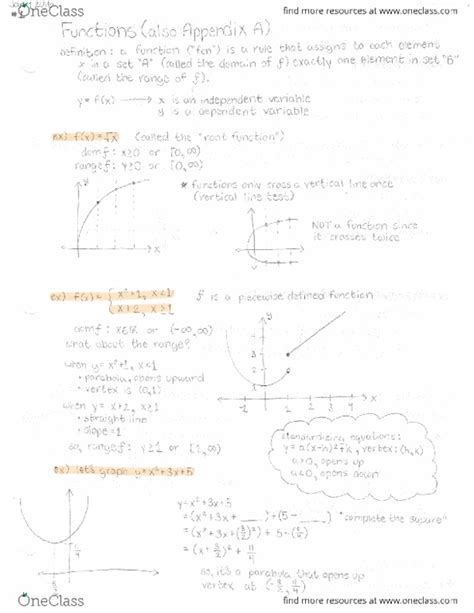 OneClass
find more resources at www.oneclass.com
Functions (also Appendix A)
definition: a function ("fcn") is a rule that assigns to each element
x in a set "A" (called the domain of f) exactly one element in set "B"
(called the range of f).
y = f(x) → x is an independent variable
y is a dependent variable
ex) f(x)=√x (called the "root function")
domf: x≥0 or [0,∞)
rangef: y≥0 or [0,∞)
* functions only cross a vertical line once
(vertical line test)
y
x
NOT a function since
it crosses twice
ex) f(x) = { x²+1, x<1
x+2, x≥1
f is a piecewise defined function
domf: x∈ℝ or (-∞,∞)
what about the range?
when y = x²+1, x<1
• parabola, opens upward
• vertex is (0,1)
when y = x+2, x≥1
• straight line
• slope=1
so, rangef: y≥1 or [1,∞)
y
4
3
2
-1
1
2
3
4
x
standardizing equations:
y = a(x-h)²+k, vertex: (h,k)
a>0, opens up
a<0, opens down
ex) let's graph y=x²+3x+5
y = x²+3x+5
= (x²+3x+__)+(5-__) "complete the square"
= (x+3/2)² + 11/4
so, it's a parabola that opens up
vertex at (-3/2, 11/4)
11/4
OneClass
find more resources at www.oneclass.com